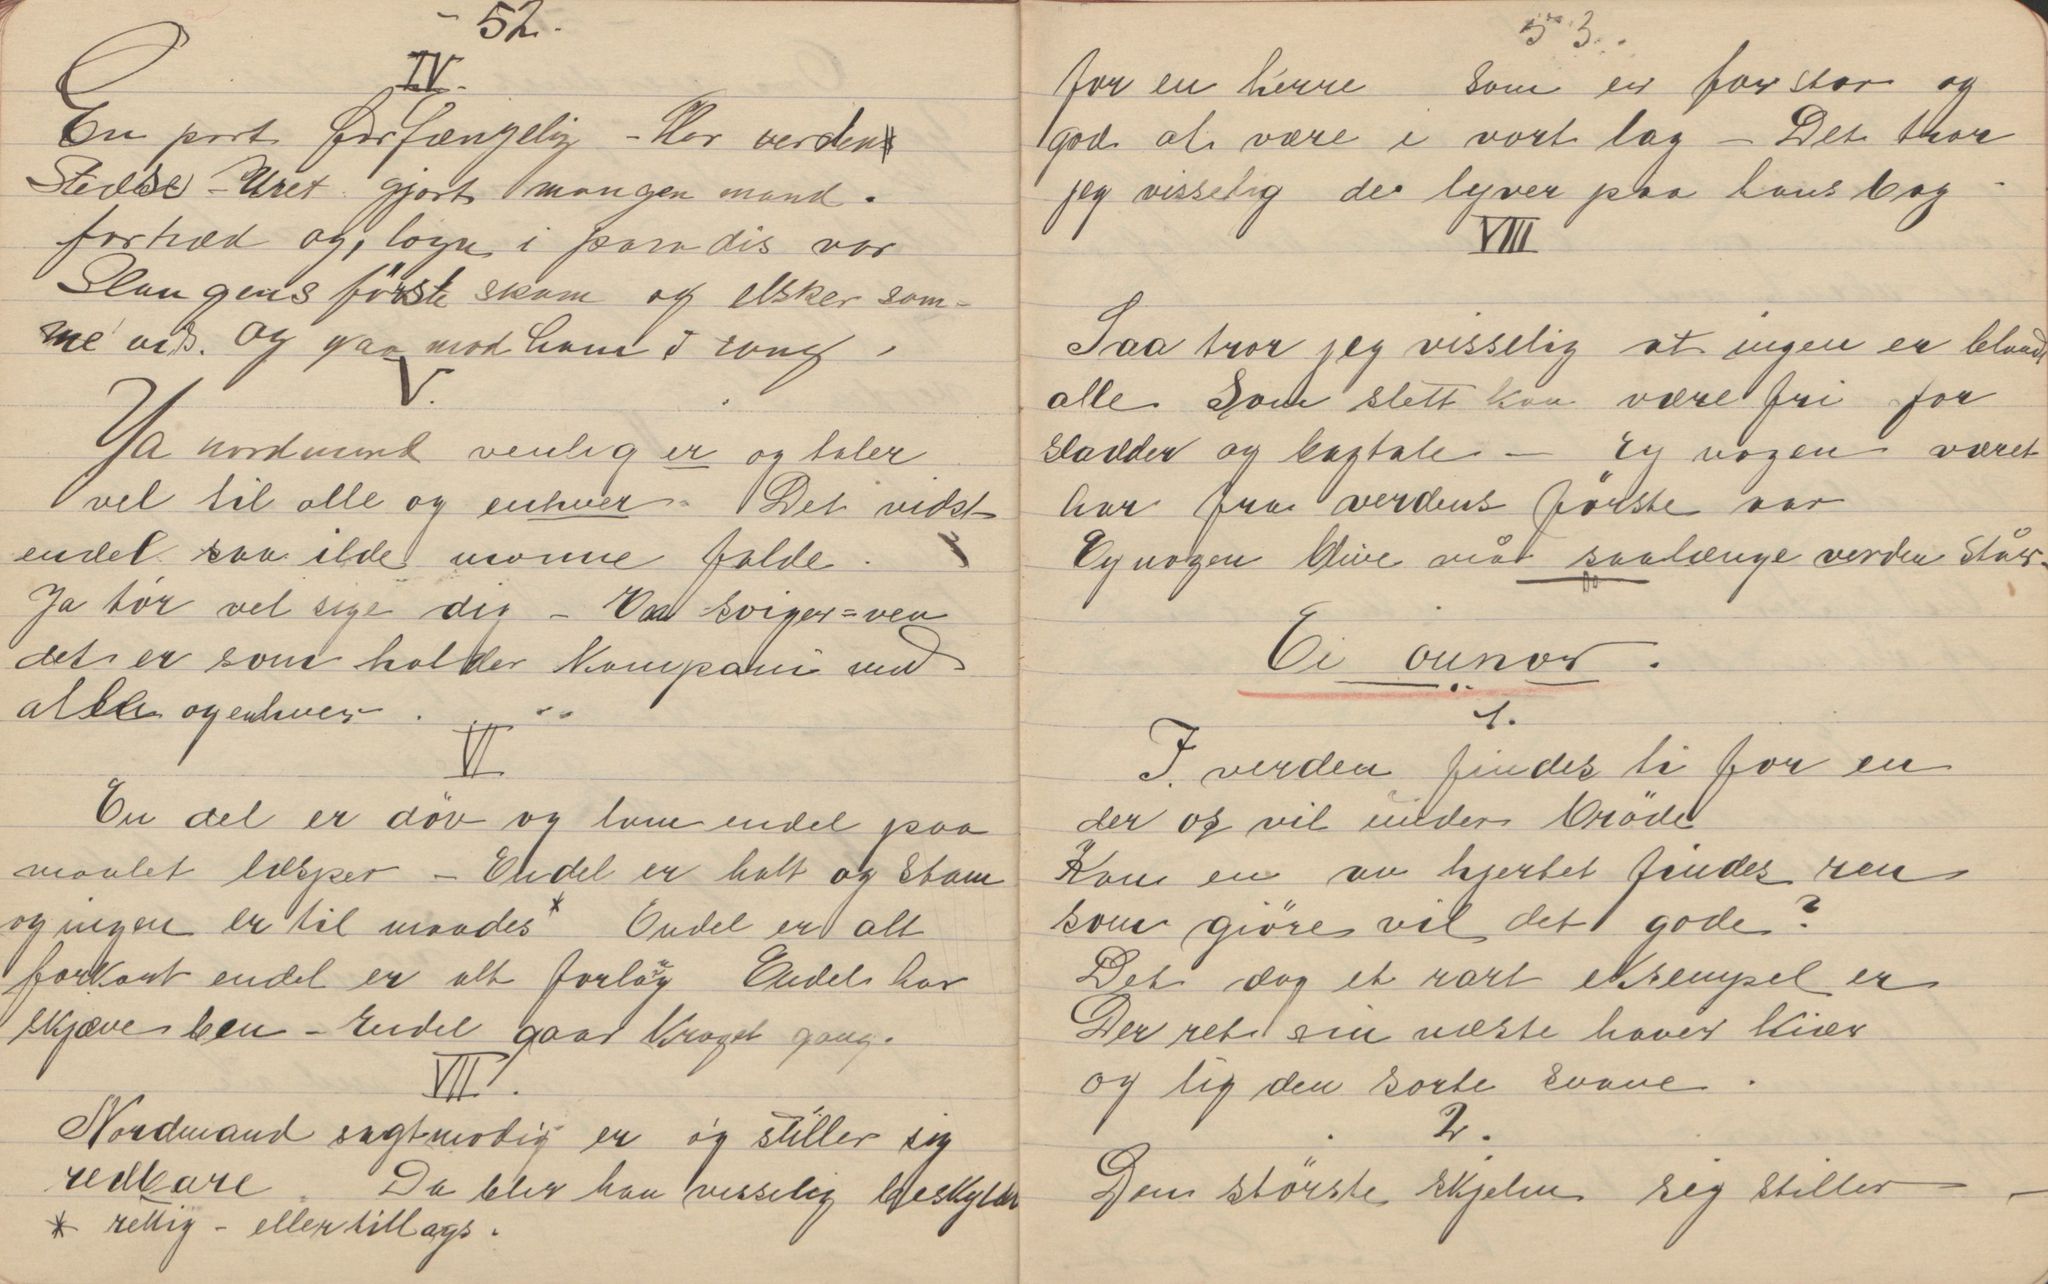 - 52.
IV.
En part forfængelig - Har verden
Stedse - Uret gjort mangen mand.
fortræd og, løgn i paradis var
Slangens förste skam og elsker sam-
me vis. Og gaa mod ham i rang,
V.
Ja nordmand venlig er og taler
vel til alle og enhver. Det vidst
endel saa ilde monne falde.
Ja tör vel sige dig - En sviger=ven
det er som holder Kompani med
alle og enhver.
VI
En del er döv og lam endel paa
maalet læsper - Endel er halt og stam
og ingen er til maades* Endel er alt
forkort endel er alt forlang Endel har
skjæve ben - Endel gaar Kroget gang.
VII.
Nordmand sagtmodig er og stiller sig
redbare. Da blir han visselig beskyldt
* rettig - eller tillags.
53.
for en herre som er for stor og
god at være i vort lag - Det tror
jeg visselig de lyver paa hans bag -
VIII
Saa tror jeg visselig at ingen er blandt
alle Som slett kan være fri for
sladder og bagtale - Ey nogen været
har fra verdens förste aar
Ey nogen blive maa saalænge verden står.
Ei ounor.
1.
I verden findes ti for en
der os vil under bröde
Kan en av hjertet findes ren
som giöre vil det gode?
Det dog et rart eksempel er
Der ret sin næste haver kiær
og lig den sorte svane.
2.
Den störste skjelm sig stiller -